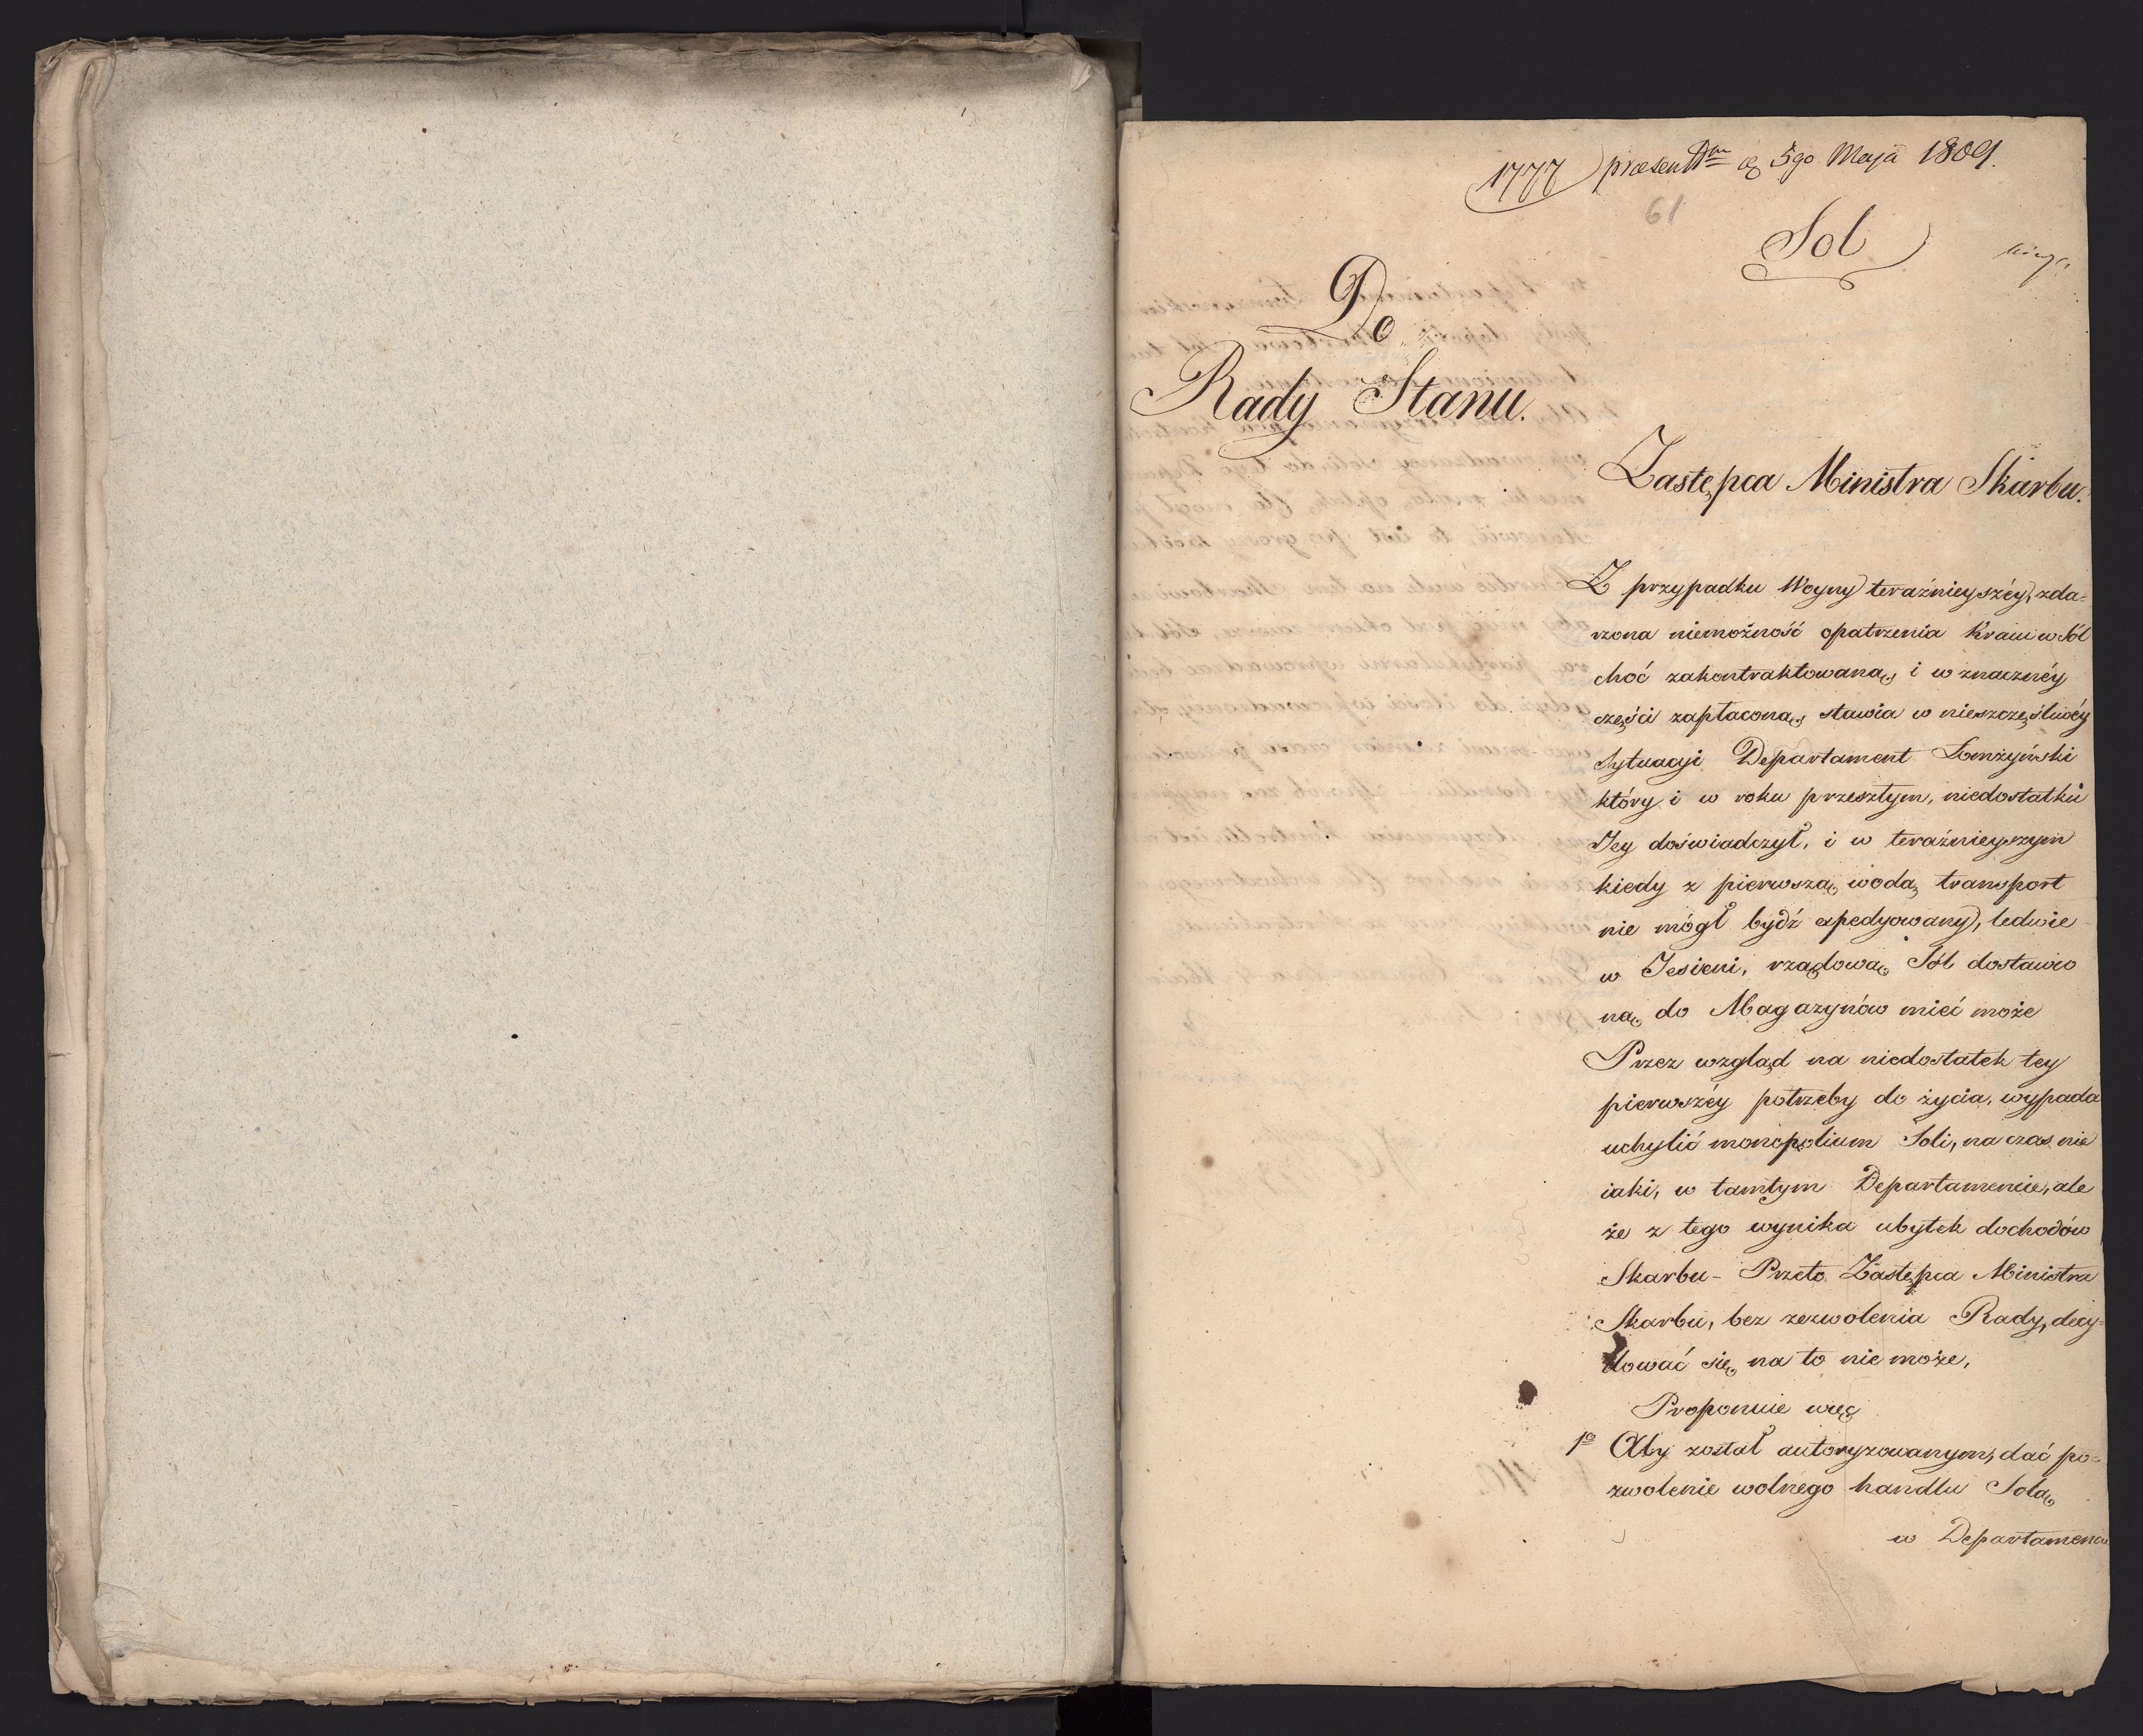 1777 praesentt<sup>m</sup> d. 5go Maja 1809.
61
Sol
Do
Rady Stanu.
Zastępca Ministra Skarbu.
Z przypadku Woyny teraźnieyszéy, zda=
rzona niemożność opatrzenia Kraiu w Sól
choć zakontraktowaną, i w znacznéy
części zapłaconą, stawia w nieszczęśliwéy
Sytuacyi Departament Łomżyński
który i w roku przeszłym, niedostatku
Jey doświadczył, i w teraźnieyszym
kiedy z pierwszą wodą transport
nie mógł bydź expedyowany, ledwie
w Jesieni, rządową Sól dostawio
ną do Magazynów mieć może
Przez wzgląd na niedostatek tey
pierwszéy potrzeby do życia, wypada
uchylić monopolium Soli, na czas nie
iaki, w tamtym Departamencie, ale
że z tego wynika ubytek dochodów
Skarbu - Przeto Zastępca Ministra
Skarbu, bez zezwolenia Rady, decy=
dować się na to nie może,
Proponuie więc
1<sup>o</sup> Aby został autoryzowanym, dać po=
zwolenie wolnego handlu Solą
w Departamencie